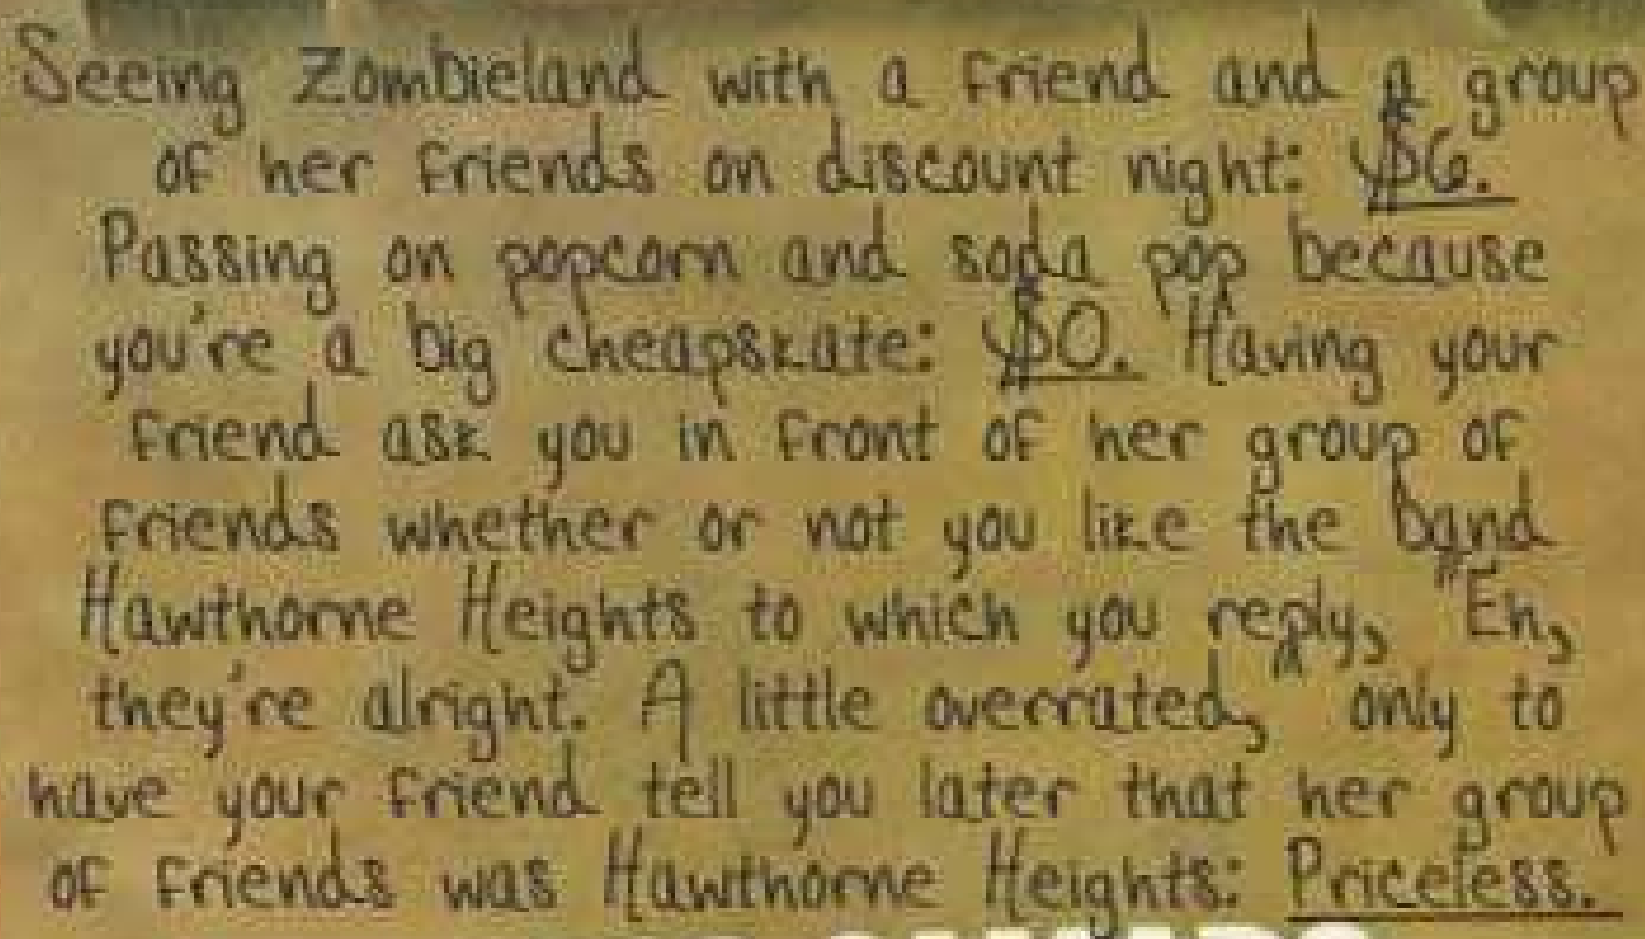 Seeing Zombieland with a friend and a group
of her friends on discount night: $6.
Passing on popcorn and soda pop because
you're a big cheapskate: $0. Having your
friend ask you in front of her group of
friends whether or not you like the band
Hawthorne Heights to which you reply, "Eh,
they're alright. A little overrated," only to
have your friend tell you later that her group
of friends was Hawthorne Heights: Priceless.